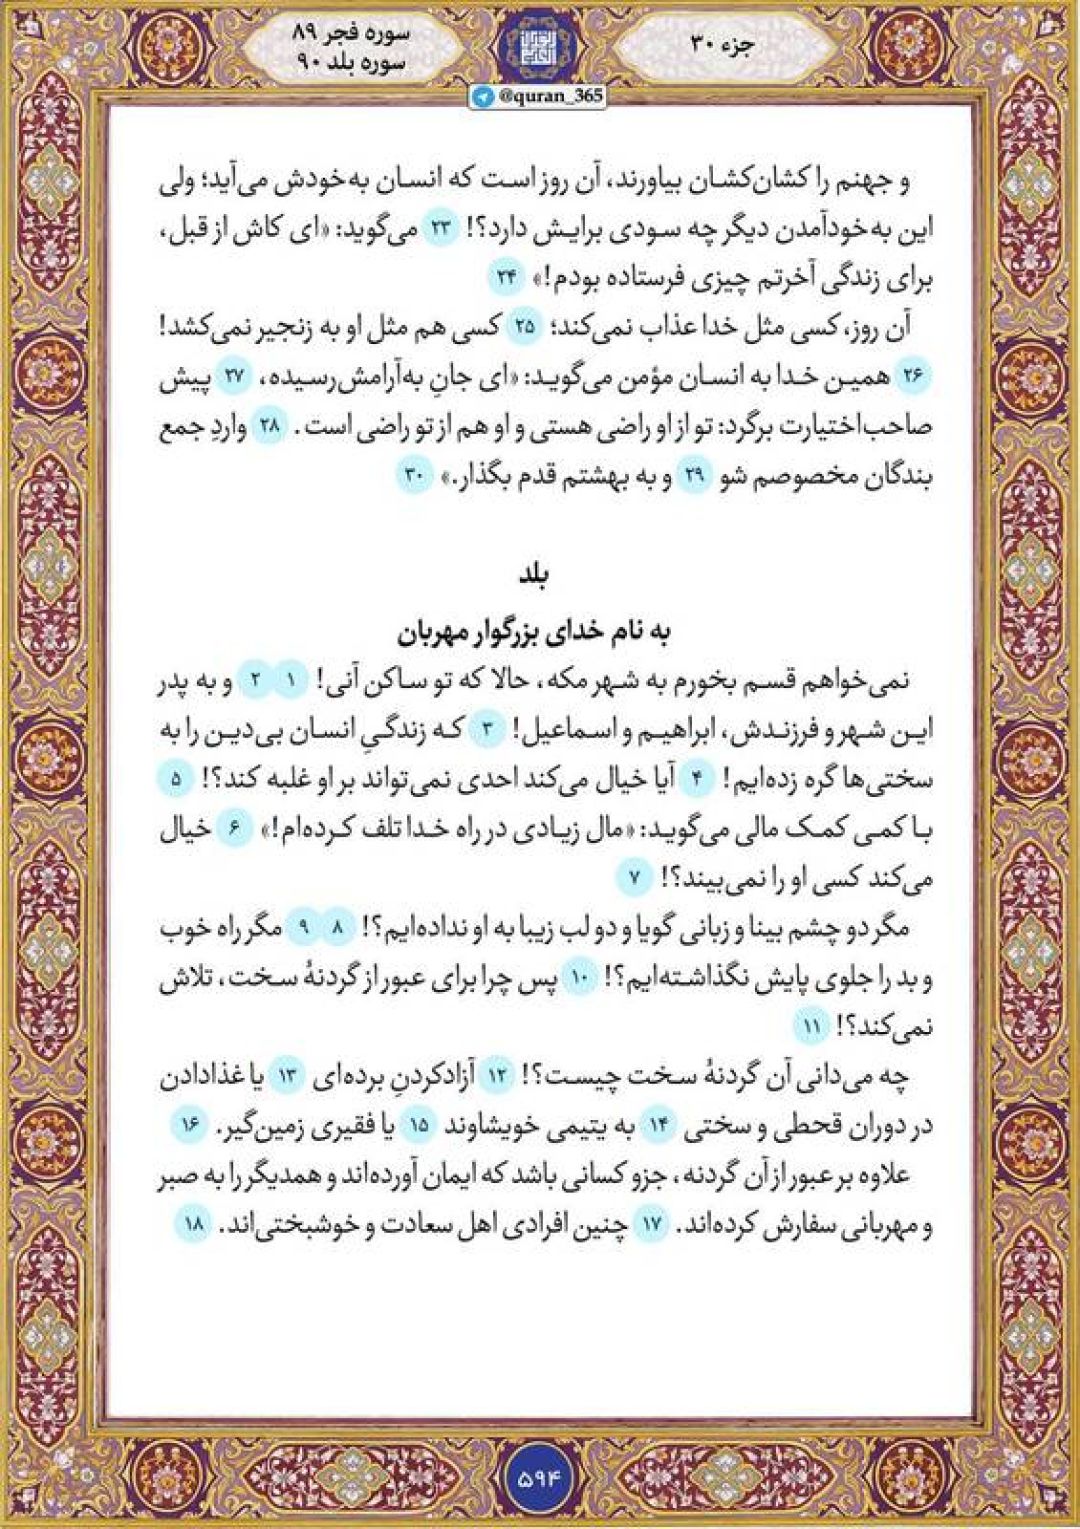 جزء ۳۰
سوره فجر ۸۹
سوره بلد ۹۰
@quran_365
و جهنم را کشان‌کشان بیاورند، آن روز است که انسان به‌خودش می‌آید؛ ولی
این به‌خودآمدن دیگر چه سودی برایش دارد؟! ۲۳ می‌گوید: «ای کاش از قبل،
برای زندگی آخرتم چیزی فرستاده بودم!» ۲۴
آن روز، کسی مثل خدا عذاب نمی‌کند؛ ۲۵ کسی هم مثل او به زنجیر نمی‌کشد!
۲۶ همین خدا به انسان مؤمن می‌گوید: «ای جانِ به‌آرامش‌رسیده، ۲۷ پیش
صاحب‌اختیارت برگرد: تو از او راضی هستی و او هم از تو راضی است. ۲۸ واردِ جمع
بندگان مخصوصم شو ۲۹ و به بهشتم قدم بگذار.» ۳۰
بلد
به نام خدای بزرگوار مهربان
نمی‌خواهم قسم بخورم به شهر مکه، حالا که تو ساکن آنی! ۱ ۲ و به پدر
این شهر و فرزندش، ابراهیم و اسماعیل! ۳ که زندگیِ انسان بی‌دین را به
سختی‌ها گره زده‌ایم! ۴ آیا خیال می‌کند احدی نمی‌تواند بر او غلبه کند؟! ۵
با کمی کمک مالی می‌گوید: «مال زیادی در راه خدا تلف کرده‌ام!» ۶ خیال
می‌کند کسی او را نمی‌بیند؟! ۷
مگر دو چشم بینا و زبانی گویا و دو لب زیبا به او نداده‌ایم؟! ۸ ۹ مگر راه خوب
و بد را جلوی پایش نگذاشته‌ایم؟! ۱۰ پس چرا برای عبور از گردنهٔ سخت، تلاش
نمی‌کند؟! ۱۱
چه می‌دانی آن گردنهٔ سخت چیست؟! ۱۲ آزادکردنِ برده‌ای ۱۳ یا غذادادن
در دوران قحطی و سختی ۱۴ به یتیمی خویشاوند ۱۵ یا فقیری زمین‌گیر. ۱۶
علاوه بر عبور از آن گردنه، جزو کسانی باشد که ایمان آورده‌اند و همدیگر را به صبر
و مهربانی سفارش کرده‌اند. ۱۷ چنین افرادی اهل سعادت و خوشبختی‌اند. ۱۸
۵۹۴